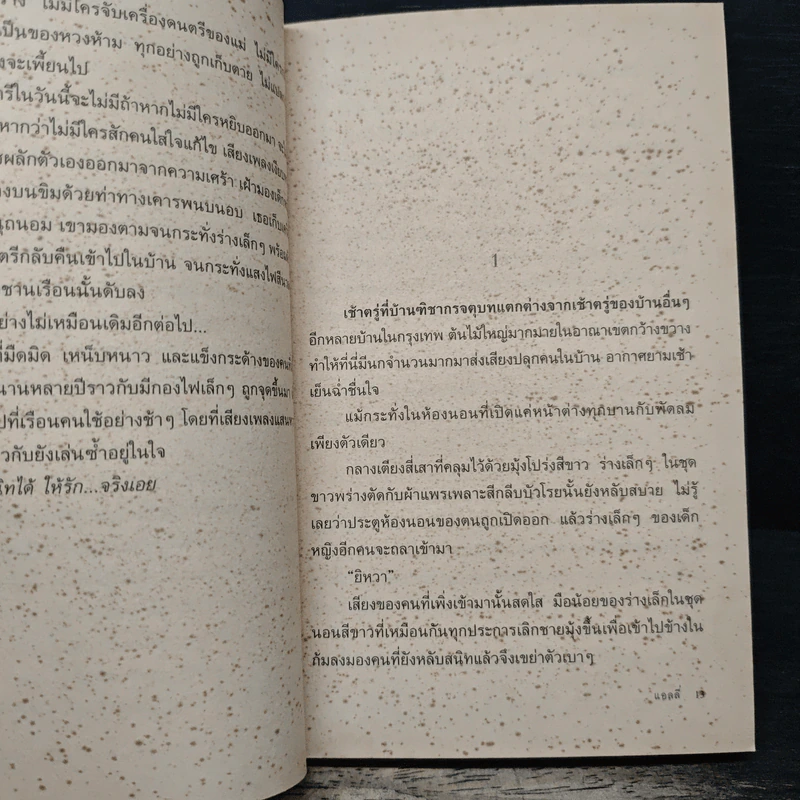 ไม่มีใครจับเครื่องดนตรีของแม่ ไม่มีใคร
เป็นของหวงห้าม ทุกอย่างถูกเก็บตาย
จะเพี้ยนไป
รีในวันนี้จะไม่มีถ้าหากไม่มีใครหยิบออกมา
หากว่าไม่มีใครสักคนใส่ใจแก้ไข เสียงเพลง
ผลักตัวเองออกมาจากความเศร้า เฝ้ามอง
งบนขิมด้วยท่าทางเคารพนบนอบ เธอเก็บ
ถนอม เขามองตามจนกระทั่งร่างเล็กๆ พร้อม
ตรีกลับคืนเข้าไปในบ้าน จนกระทั่งแสงไฟ
ชานเรือนนั้นดับลง
ย่างไม่เหมือนเดิมอีกต่อไป...
ที่มืดมิด เหน็บหนาว และแข็งกระด้างของคน
นานหลายปีราวกับมีกองไฟเล็กๆ ถูกจุดขึ้นมา
ปที่เรือนคนใช้อย่างช้าๆ โดยที่เสียงเพลงแสน
วกับยังเล่นซ้ำอยู่ในใจ
นิทได้ ให้รัก...จริงเอย
1
เช้าตรู่ที่บ้านฑิชากรจตุบทแตกต่างจากเช้าตรู่ของบ้านอื่นๆ
อีกหลายบ้านในกรุงเทพ ต้นไม้ใหญ่มากมายในอาณาเขตกว้างขวาง
ทำให้ที่นี่มีนกจำนวนมากมาส่งเสียงปลุกคนในบ้าน อากาศยามเช้า
เย็นฉ่ำชื่นใจ
แม้กระทั่งในห้องนอนที่เปิดแค่หน้าต่างทุกบานกับพัดลม
เพียงตัวเดียว
กลางเตียงสี่เสาที่คลุมไว้ด้วยมุ้งโปร่งสีขาว ร่างเล็กๆ ในชุด
ขาวพร่างตัดกับผ้าแพรเพลาะสีกลีบบัวโรยนั้นยังหลับสบาย ไม่รู้
เลยว่าประตูห้องนอนของตนถูกเปิดออก แล้วร่างเล็กๆ ของเด็ก
หญิงอีกคนจะถลาเข้ามา
“ยิหวา”
เสียงของคนที่เพิ่งเข้ามานั้นสดใส มือน้อยของร่างเล็กในชุด
นอนสีขาวที่เหมือนกันทุกประการเลิกชายมุ้งขึ้นเพื่อเข้าไปข้างใน
ก้มลงมองคนที่ยังหลับสนิทแล้วจึงเขย่าตัวเบาๆ
แอลลี่ 13